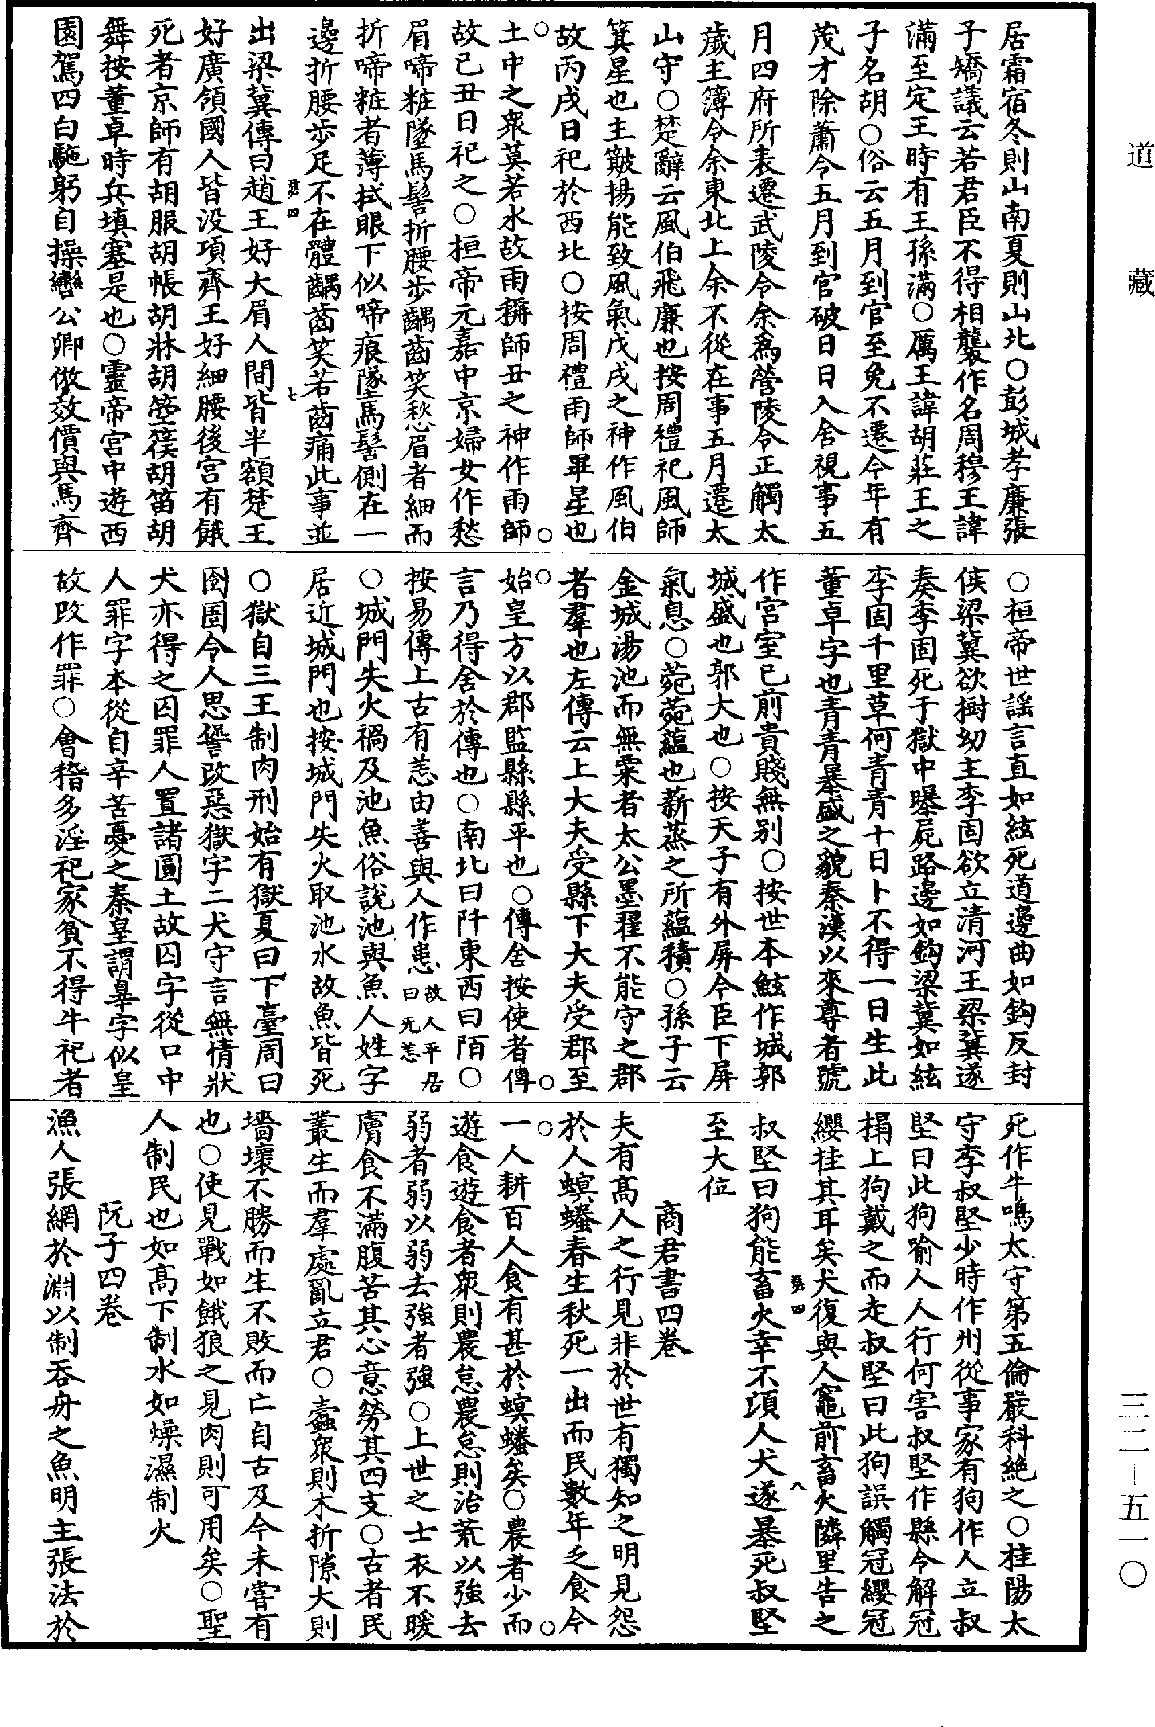 道藏
居霜宿冬則山南夏則山北○彭城孝廉張
子矯議云若君臣不得相襲作名周穆王諱
滿至定王時有王孫滿○厲王諱胡莊王之
子名胡○俗云五月到官至免不遷今年有
茂才除蕭令五月到官破日日入舍視事五
月四府所表遷武陵令余為營陵令正觸太
歲主簿令余東北上余不從在事五月遷太
山守○楚辭云風伯飛廉也按周禮祀風師
箕星也主簸揚能致風氣戊戌之神作風伯
故丙戌日祀於西北○按周禮雨師畢星也
土中之衆莫若水故雨稱師丑之神作雨師
故己丑日祀之○桓帝元嘉中京婦女作愁
眉啼粧墜馬髻折腰步齲齒笑愁眉者細而
折啼粧者薄拭眼下似啼痕墜馬髻側在一
邊折腰步足不在體齲齒笑若齒痛此事並
出梁冀傳曰趙王好大眉人間皆半額楚王
好廣領國人皆没項齊王好細腰後宫有餓
死者京師有胡服胡帳胡牀胡箜篌胡笛胡
舞按董卓時兵填塞是也○靈帝宫中遊西
園駕四白驢躬自操轡公卿倣效價與馬齊
○桓帝世謡言直如絃死道邊曲如鈎反封
侯梁冀欲樹幼主李固欲立清河王梁冀遂
奏李固死于獄中曝屍路邊如鈎梁冀如絃
李固千里草何青青十日卜不得一日生此
董卓字也青青暴盛之貌秦漢以來尊者號
作宫室已前貴賤無别○按世本鮌作城郭
城盛也郭大也○按天子有外屏令臣下屏
氣息○菀菀蘊也薪蒸之所蘊積○孫子云
金城湯池而無粟者太公墨翟不能守之郡
者羣也左傳云上大夫受縣下大夫受郡至
始皇方以郡監縣縣平也○傳舍按使者傳
言乃得舍於傳也○南北曰阡東西曰陌○
按易傳上古有恙由善與人作患故人平居曰无恙
○城門失火禍及池魚俗說池與魚人姓字
居近城門也按城門失火取池水故魚皆死
○獄自三王制肉刑始有獄夏曰下臺周曰
囹圄令人思諐改惡獄字二犬守言無情狀
犬亦得之囚罪人置諸圓土故囚字從口中
人罪字本從自辛苦憂之秦皇謂辠字似皇
故改作罪○會稽多淫祀家貧不得牛祀者
死作牛鳴太守第五倫嚴科絶之○桂陽太
守李叔堅少時作州從事家有狗作人立叔
堅曰此狗喻人人行何害叔堅作縣令解冠
榻上狗戴之而走叔堅曰此狗誤觸冠纓冠
纓挂其耳矣犬復與人竈前畜火隣里告之
叔堅曰狗能畜火幸不項人犬遂暴死叔堅
至大位
商君書四卷
夫有高人之行見非於世有獨知之明見怨
於人螟蟠春生秋死一出而民數年乏食今
一人耕百人食有甚於螟蟠矣○農者少而
遊食遊食者衆則農怠農怠則治荒以強去
弱者弱以弱去強者強○上世之士衣不暖
膚食不滿腹苦其心意勞其四支○古者民
叢生而羣處亂立君○蠹衆則木折隙大則
墻壞不勝而生不敗而亡自古及今未嘗有
也○使見戰如餓狼之見肉則可用矣○聖
人制民也如高下制水如燥濕制火
阮子四卷
漁人張網於淵以制吞舟之魚明主張法於
三二—五一○